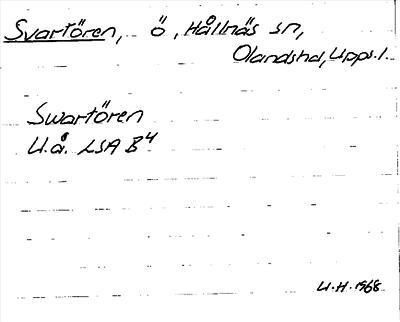 Svartören, ö, Hållnäs sn,
Olandshd, Upps. l.
Swartören
U.å. LSA B4
U.H. 1968